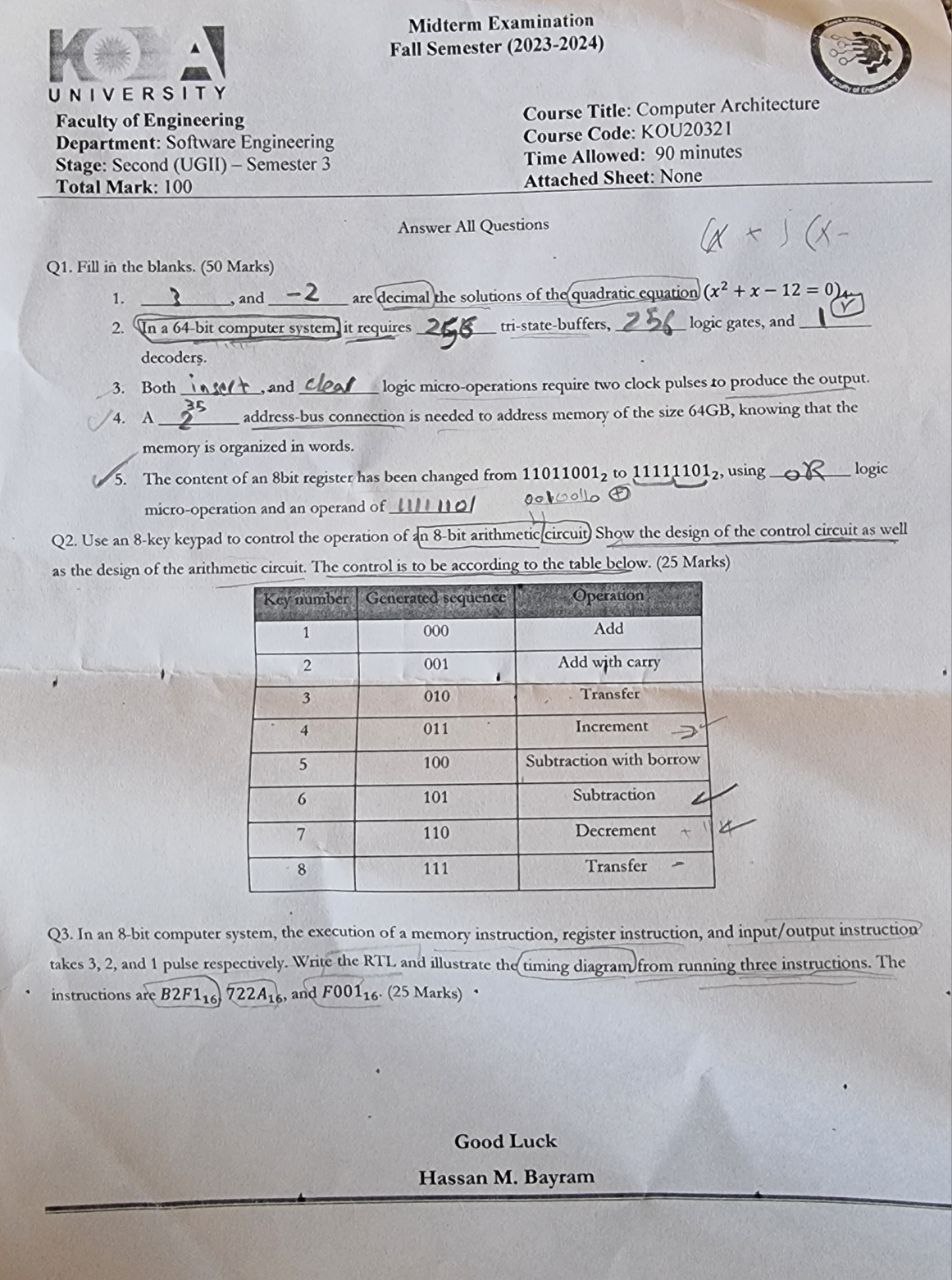 KOYA
UNIVERSITY
Midterm Examination
Fall Semester (2023-2024)
Faculty of Engineering
Department: Software Engineering
Stage: Second (UGII) – Semester 3
Total Mark: 100
Course Title: Computer Architecture
Course Code: KOU20321
Time Allowed: 90 minutes
Attached Sheet: None
Answer All Questions
(x + ) (x -
Q1. Fill in the blanks. (50 Marks)
1. 3, and -2 are decimal the solutions of the quadratic equation (x² + x − 12 = 0)
2. In a 64-bit computer system, it requires 256 tri-state-buffers, 256 logic gates, and 1
decoders.
3. Both insert, and clear logic micro-operations require two clock pulses to produce the output.
4. A 2³⁵ address-bus connection is needed to address memory of the size 64GB, knowing that the
memory is organized in words.
5. The content of an 8bit register has been changed from 11011001₂ to 11111101₂, using OR logic
micro-operation and an operand of 11111101
Q2. Use an 8-key keypad to control the operation of an 8-bit arithmetic circuit. Show the design of the control circuit as well
as the design of the arithmetic circuit. The control is to be according to the table below. (25 Marks)
Key number Generated sequence Operation
1 000 Add
2 001 Add with carry
3 010 Transfer
4 011 Increment
5 100 Subtraction with borrow
6 101 Subtraction
7 110 Decrement
8 111 Transfer
Q3. In an 8-bit computer system, the execution of a memory instruction, register instruction, and input/output instruction
takes 3, 2, and 1 pulse respectively. Write the RTL and illustrate the timing diagram from running three instructions. The
instructions are B2F1₁₆, 722A₁₆, and F001₁₆. (25 Marks)
Good Luck
Hassan M. Bayram